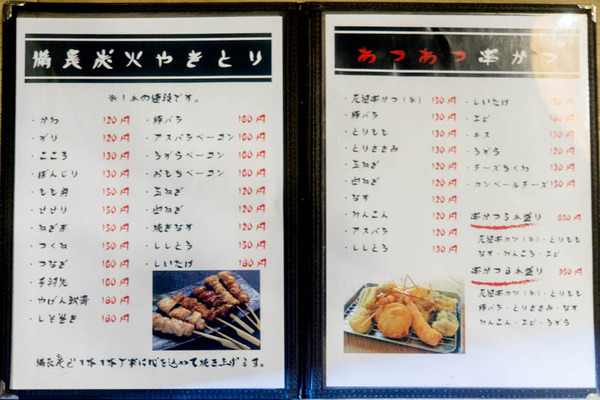 備長炭火やきとり
※1本の値段です。
・かわ 120円
・ずり 120円
・こころ 130円
・ぼんじり 130円
・もも身 150円
・せせり 150円
・ねぎま 150円
・つくね 150円
・つなぎ 160円
・手羽先 180円
・やげん軟骨 180円
・しそ巻き 180円
・豚バラ 160円
・アスパラベーコン 180円
・うずらベーコン 180円
・おもちベーコン 180円
・玉ねぎ
・白ねぎ
・焼きなす
・ししとう
・しいたけ 180円
備長炭で1本1本丁寧に心を込めて焼き上げます。
あつあつ串かつ
・元祖串かつ(牛) 150円
・豚バラ 150円
・とりもも 130円
・とりささみ 130円
・玉ねぎ 120円
・白ねぎ 120円
・なす 120円
・れんこん 120円
・アスパラ 120円
・ししとう 130円
・しいたけ 130円
・エビ
・キス
・うずら 120円
・チーズちくわ 130円
・カンベールチーズ 150円
串かつ5本盛り
元祖串カツ(牛)・とりもも
なす・れんこん・エビ
串かつ8本盛り
元祖串カツ(牛)・とりもも
豚バラ・とりささみ・なす
れんこん・エビ・うずら